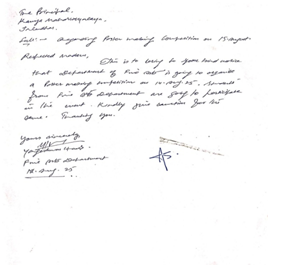 The Principal,
Kanya Mahavidyalaya,
Jalandhar.
Sub:- Regarding Poster making Competition on 15 August
Respected Madam,
This is to bring to your kind notice
that Department of Fine Arts is going to organize
a Poster making competition on 14-Aug-25. Students
from Fine Arts Department are going to participate
in this event. Kindly give sanction for the
same. Thanking you.
Yours sincerely
Fine Arts Department
12-Aug-25